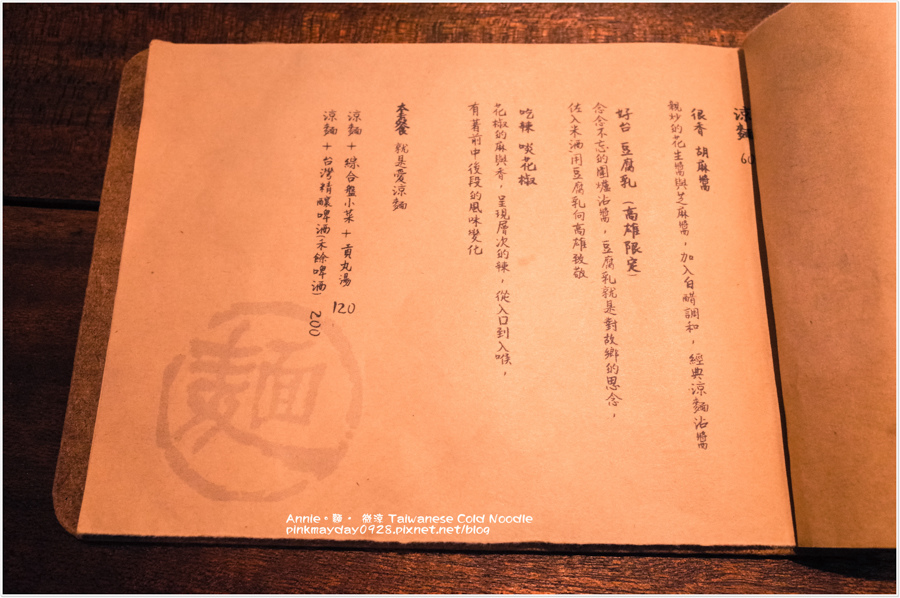 涼麵 60
很香 胡麻醬
親炒的花生醬與芝麻醬，加入白醋調和，經典涼麵沾醬
好台 豆腐乳（高雄限定）
念念不忘的圍爐沾醬，豆腐乳就是對故鄉的思念，
佐入米酒用豆腐乳向高雄致敬
吃辣 啖花椒
花椒的麻與香，呈現層次的辣，從入口到入喉，
有著前中後段的風味變化
套餐 就是愛涼麵
涼麵＋綜合盤小菜＋貢丸湯 120
涼麵＋台灣精釀啤酒(禾餘啤酒) 200
麵
Annie。麵。 微涼 Taiwanese Cold Noodle
pinkmayday0928.pixnet.net/blog